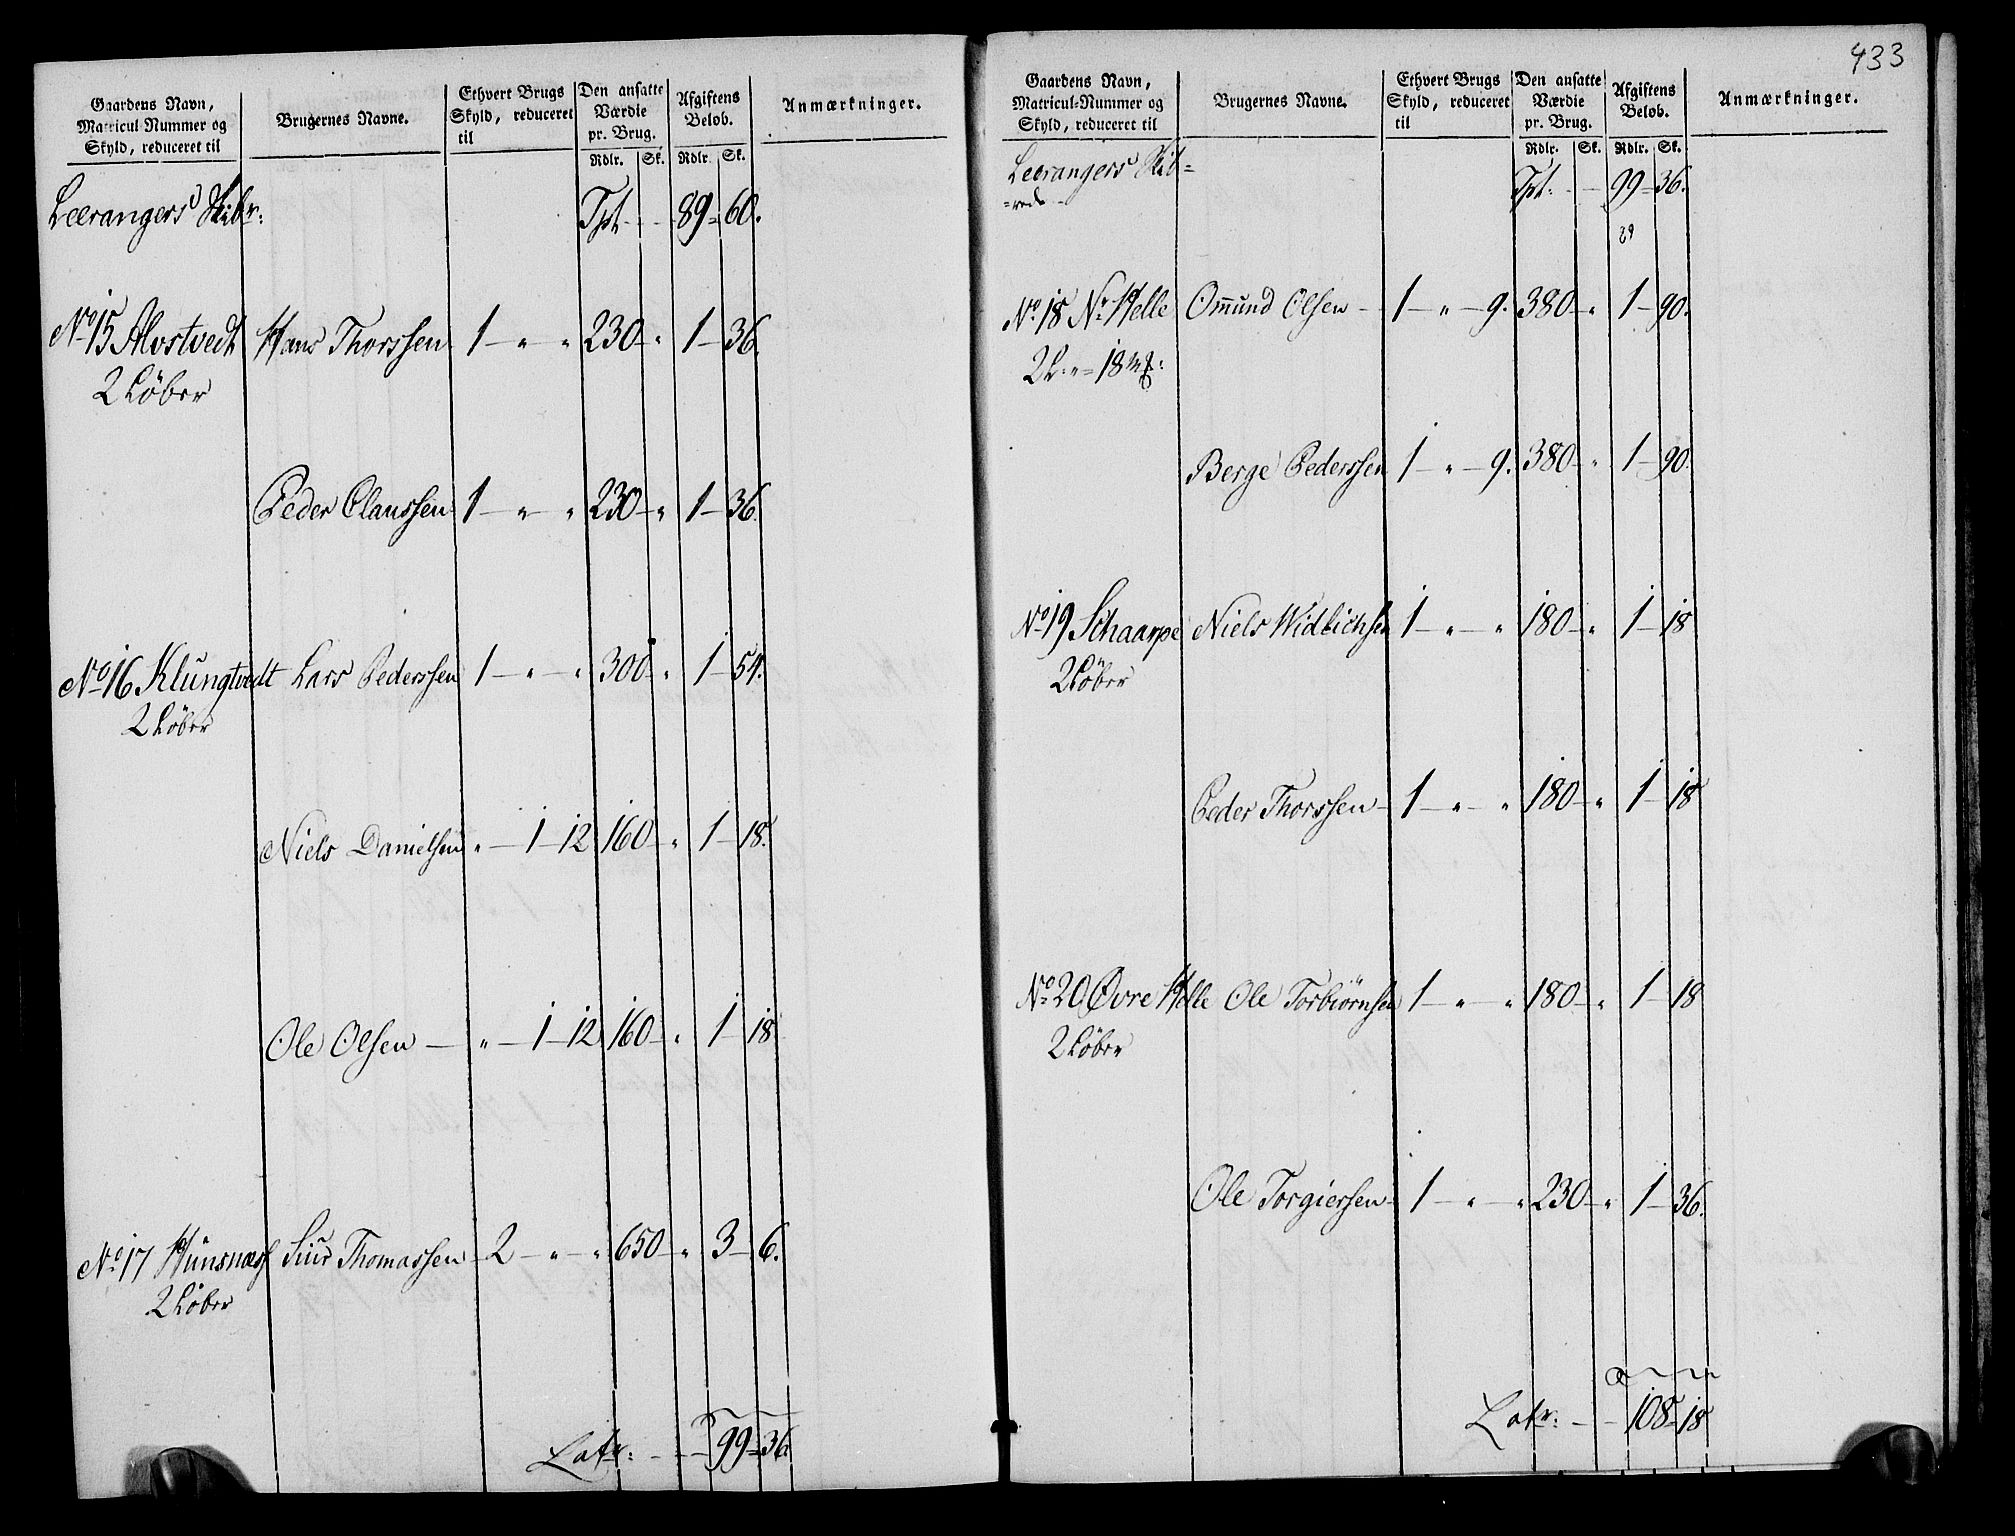 Gaardens Navn,
Matricul-Nummer og
Skyld, reduceret til
Brugernes Navne.
Ethvert Brugs
Skyld, reduceret
til
Den ansatte
Værdie
pr. Brug.
Rdlr. Sk.
Afgiftens
Beløb.
Rdlr. Sk.
Anmærkninger.
Leerangers Skibr: Tpt - - 89 = 60.
No 15 Alvstvedt Hans Thorssen 1 - " - " 230 - " 1 - 36.
2 Løber
Peder Claussen 1 - " - " 230 - " 1 - 36.
No 16 Klungtvedt Lars Pederssen 1 - " - " 300 - " 1 - 54.
2 Løber
Niels Danielsen " - 1 - 12 160 - " 1 - 18.
Ole Olsen - " - 1 - 12 160 - " 1 - 18
No 17 Hunsnæss Siur Thomassen 2 - " - " 650 - " 3 - 6.
2 Løber
Latr: - - 99 = 36
433
Gaardens Navn,
Matricul-Nummer og
Skyld, reduceret til
Brugernes Navne.
Ethvert Brugs
Skyld, reduceret
til
Den ansatte
Værdie
pr. Brug.
Rdlr. Sk.
Afgiftens
Beløb.
Rdlr. Sk.
Anmærkninger.
Leerangers Skib=
=rede - Tpt: - - 99 = 36.
No 18 Nr Helle Ommund Olsen - 1 - " - 9. 380 - " 1 - 90.
2 L: " = 18 mk:
Berge Pederssen 1 - " - 9. 380 - " 1 - 90.
No 19 Schaarpe Niels Widbichsen 1 - " - " 180 - " 1 - 18
2 Løber
Peder Thorssen - 1 - " - " 180 - " 1 - 18
No 20 Øvre Helle Ole Torbiørnsen 1 - " - " 180 - " 1 - 18
2 Løber
Ole Torgiersen - 1 - " - " 230 - " 1 - 36.
Latr: - - 108 = 18